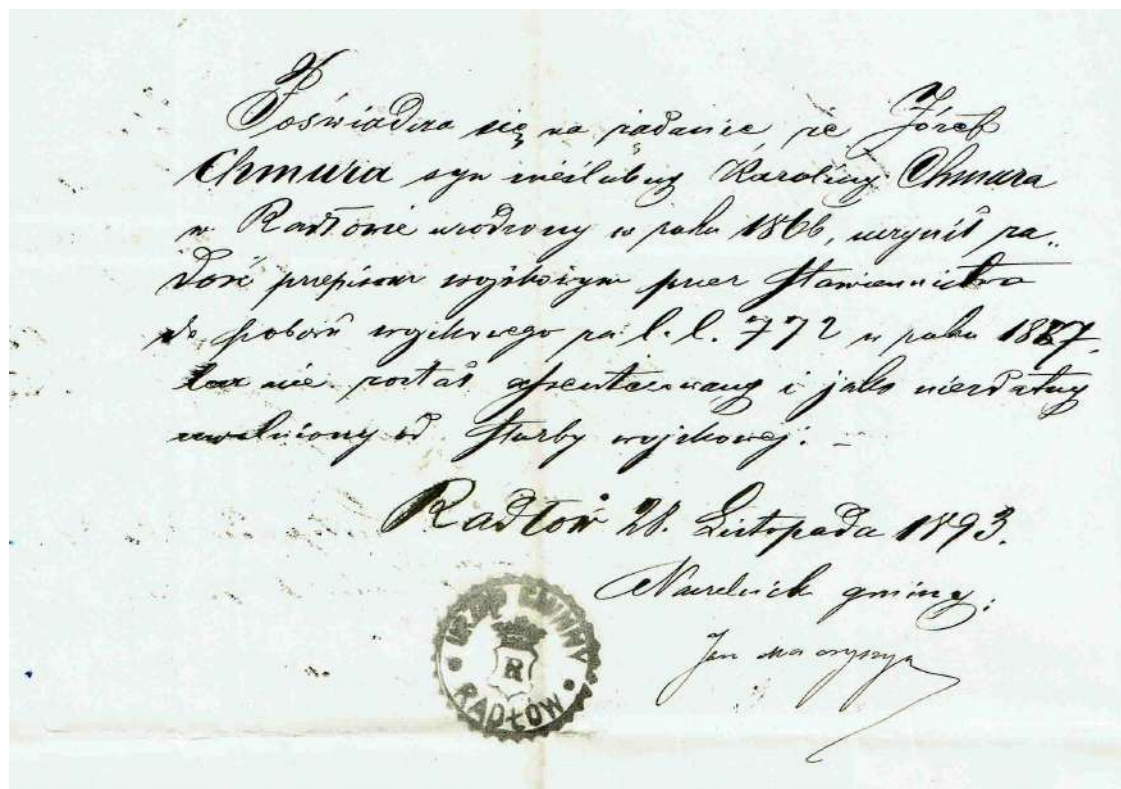 Poświadcza się na żądanie że Józef
Chmura syn nieślubny Karoliny Chmura
w Radłowie urodzony w roku 1866, uczynił za„
dość przepisom wojskowym przez stawiennictwo
do poboru wojskowego za l. l. 772 w roku 1887.
lecz nie został assenterowany i jako niezdatny
uwolniony od służby wojskowej. –
Radłów 28. Listopada 1893.
Naczelnik gminy:
Jan
URZĄD GMINNY
R
RADŁÓW